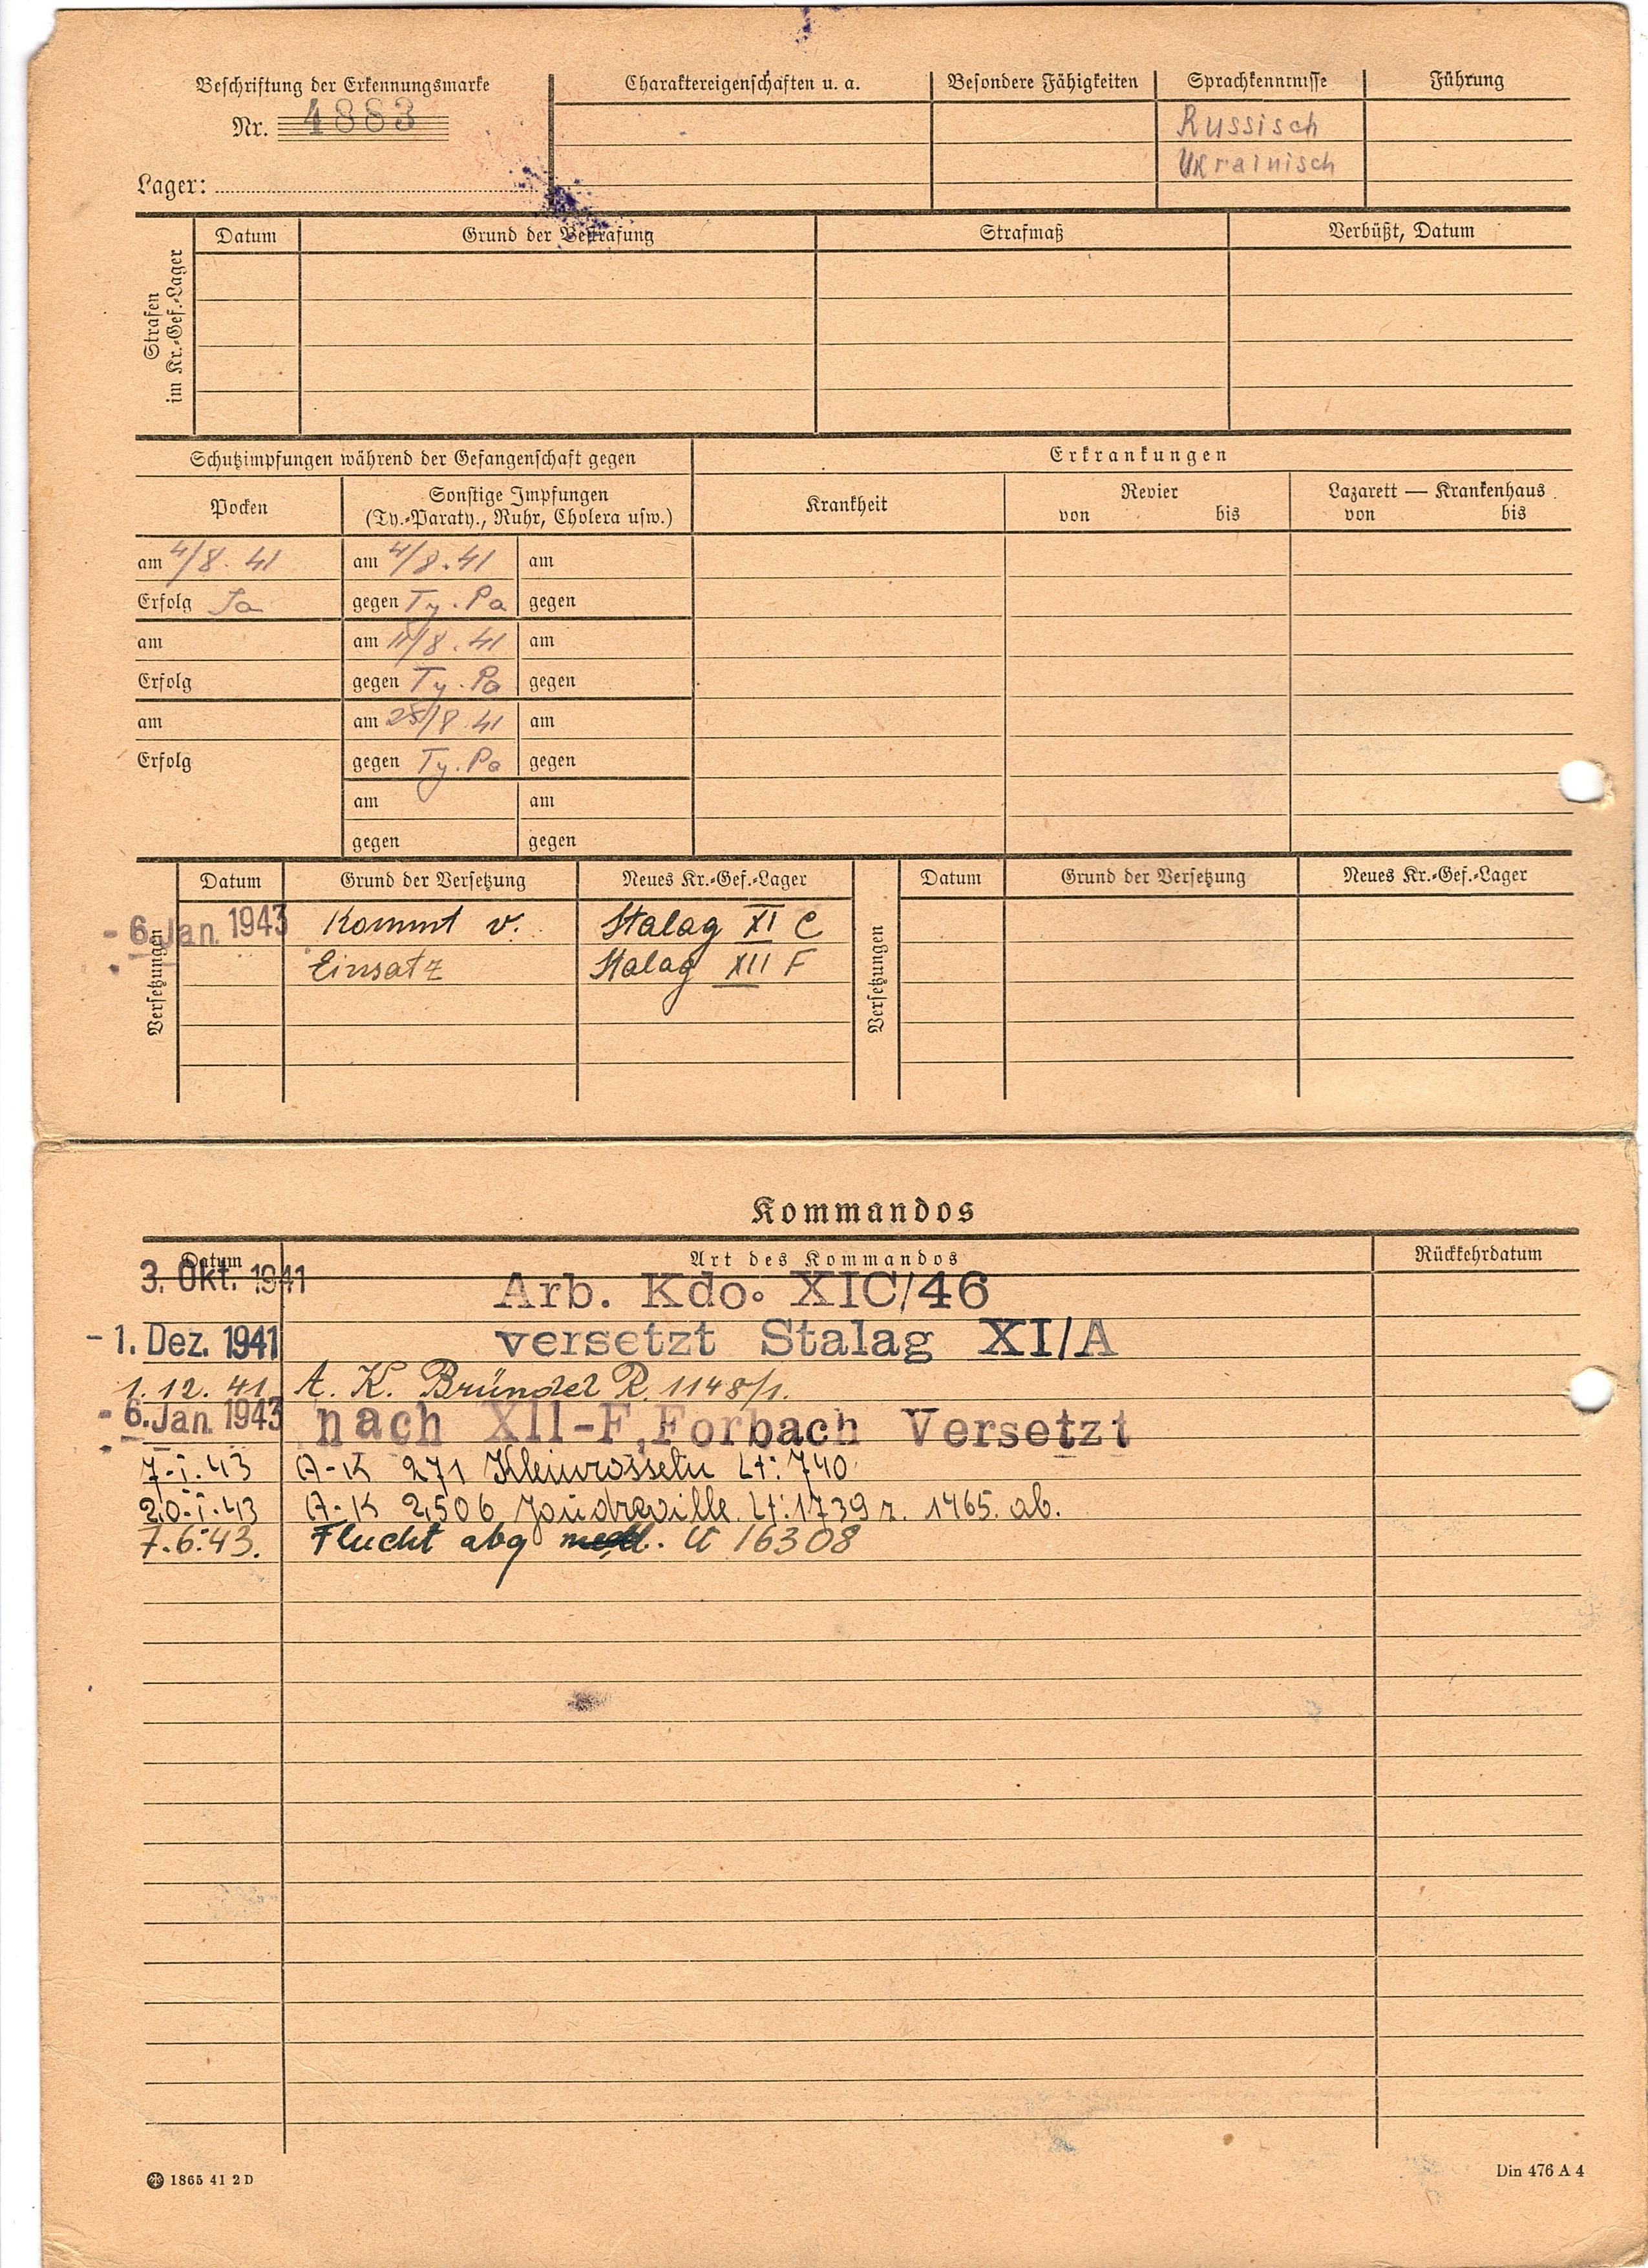 Beschriftung der Erkennungsmarke
Nr. 4883
Lager:
Charaktereigenschaften u. a.
Besondere Fähigkeiten
Sprachkenntnisse
Russisch
Ukrainisch
Führung
Strafen
im Kr.-Gef.-Lager
Datum
Grund der Bestrafung
Strafmaß
Verbüßt, Datum
Schutzimpfungen während der Gefangenschaft gegen
Erkrankungen
Pocken
Sonstige Impfungen
(Ty.-Paraty., Ruhr, Cholera usw.)
Krankheit
Revier
von bis
Lazarett — Krankenhaus
von bis
am 4/8. 41 am 4/8. 41 am
Erfolg Ja gegen Ty. Pa gegen
am am 11/8. 41 am
Erfolg gegen Ty. Pa gegen
am am 25/8 41 am
Erfolg gegen Ty. Pa gegen
am am
gegen gegen
Versetzungen
Datum Grund der Versetzung Neues Kr.-Gef.-Lager
- 6. Jan. 1943 Kommt v. Stalag XI C
Einsatz Stalag XII F
Versetzungen
Datum Grund der Versetzung Neues Kr.-Gef.-Lager
Kommandos
Datum Art des Kommandos Rückkehrdatum
3. Okt. 1941 Arb. Kdo. XIC/46
- 1. Dez. 1941 versetzt Stalag XI/A
1. 12. 41. A. K. Bründel R. 1148/1.
- 6. Jan. 1943 nach XII-F, Forbach Versetzt
7.I.43 A-K 271 Kleinrosseln Lt: 740
20.I.43 A-K 2506 Joudreville Lt: 1739 z. 1465. ab.
7.6.43. Flucht abg 16308
1865 41 2 D
Din 476 A 4